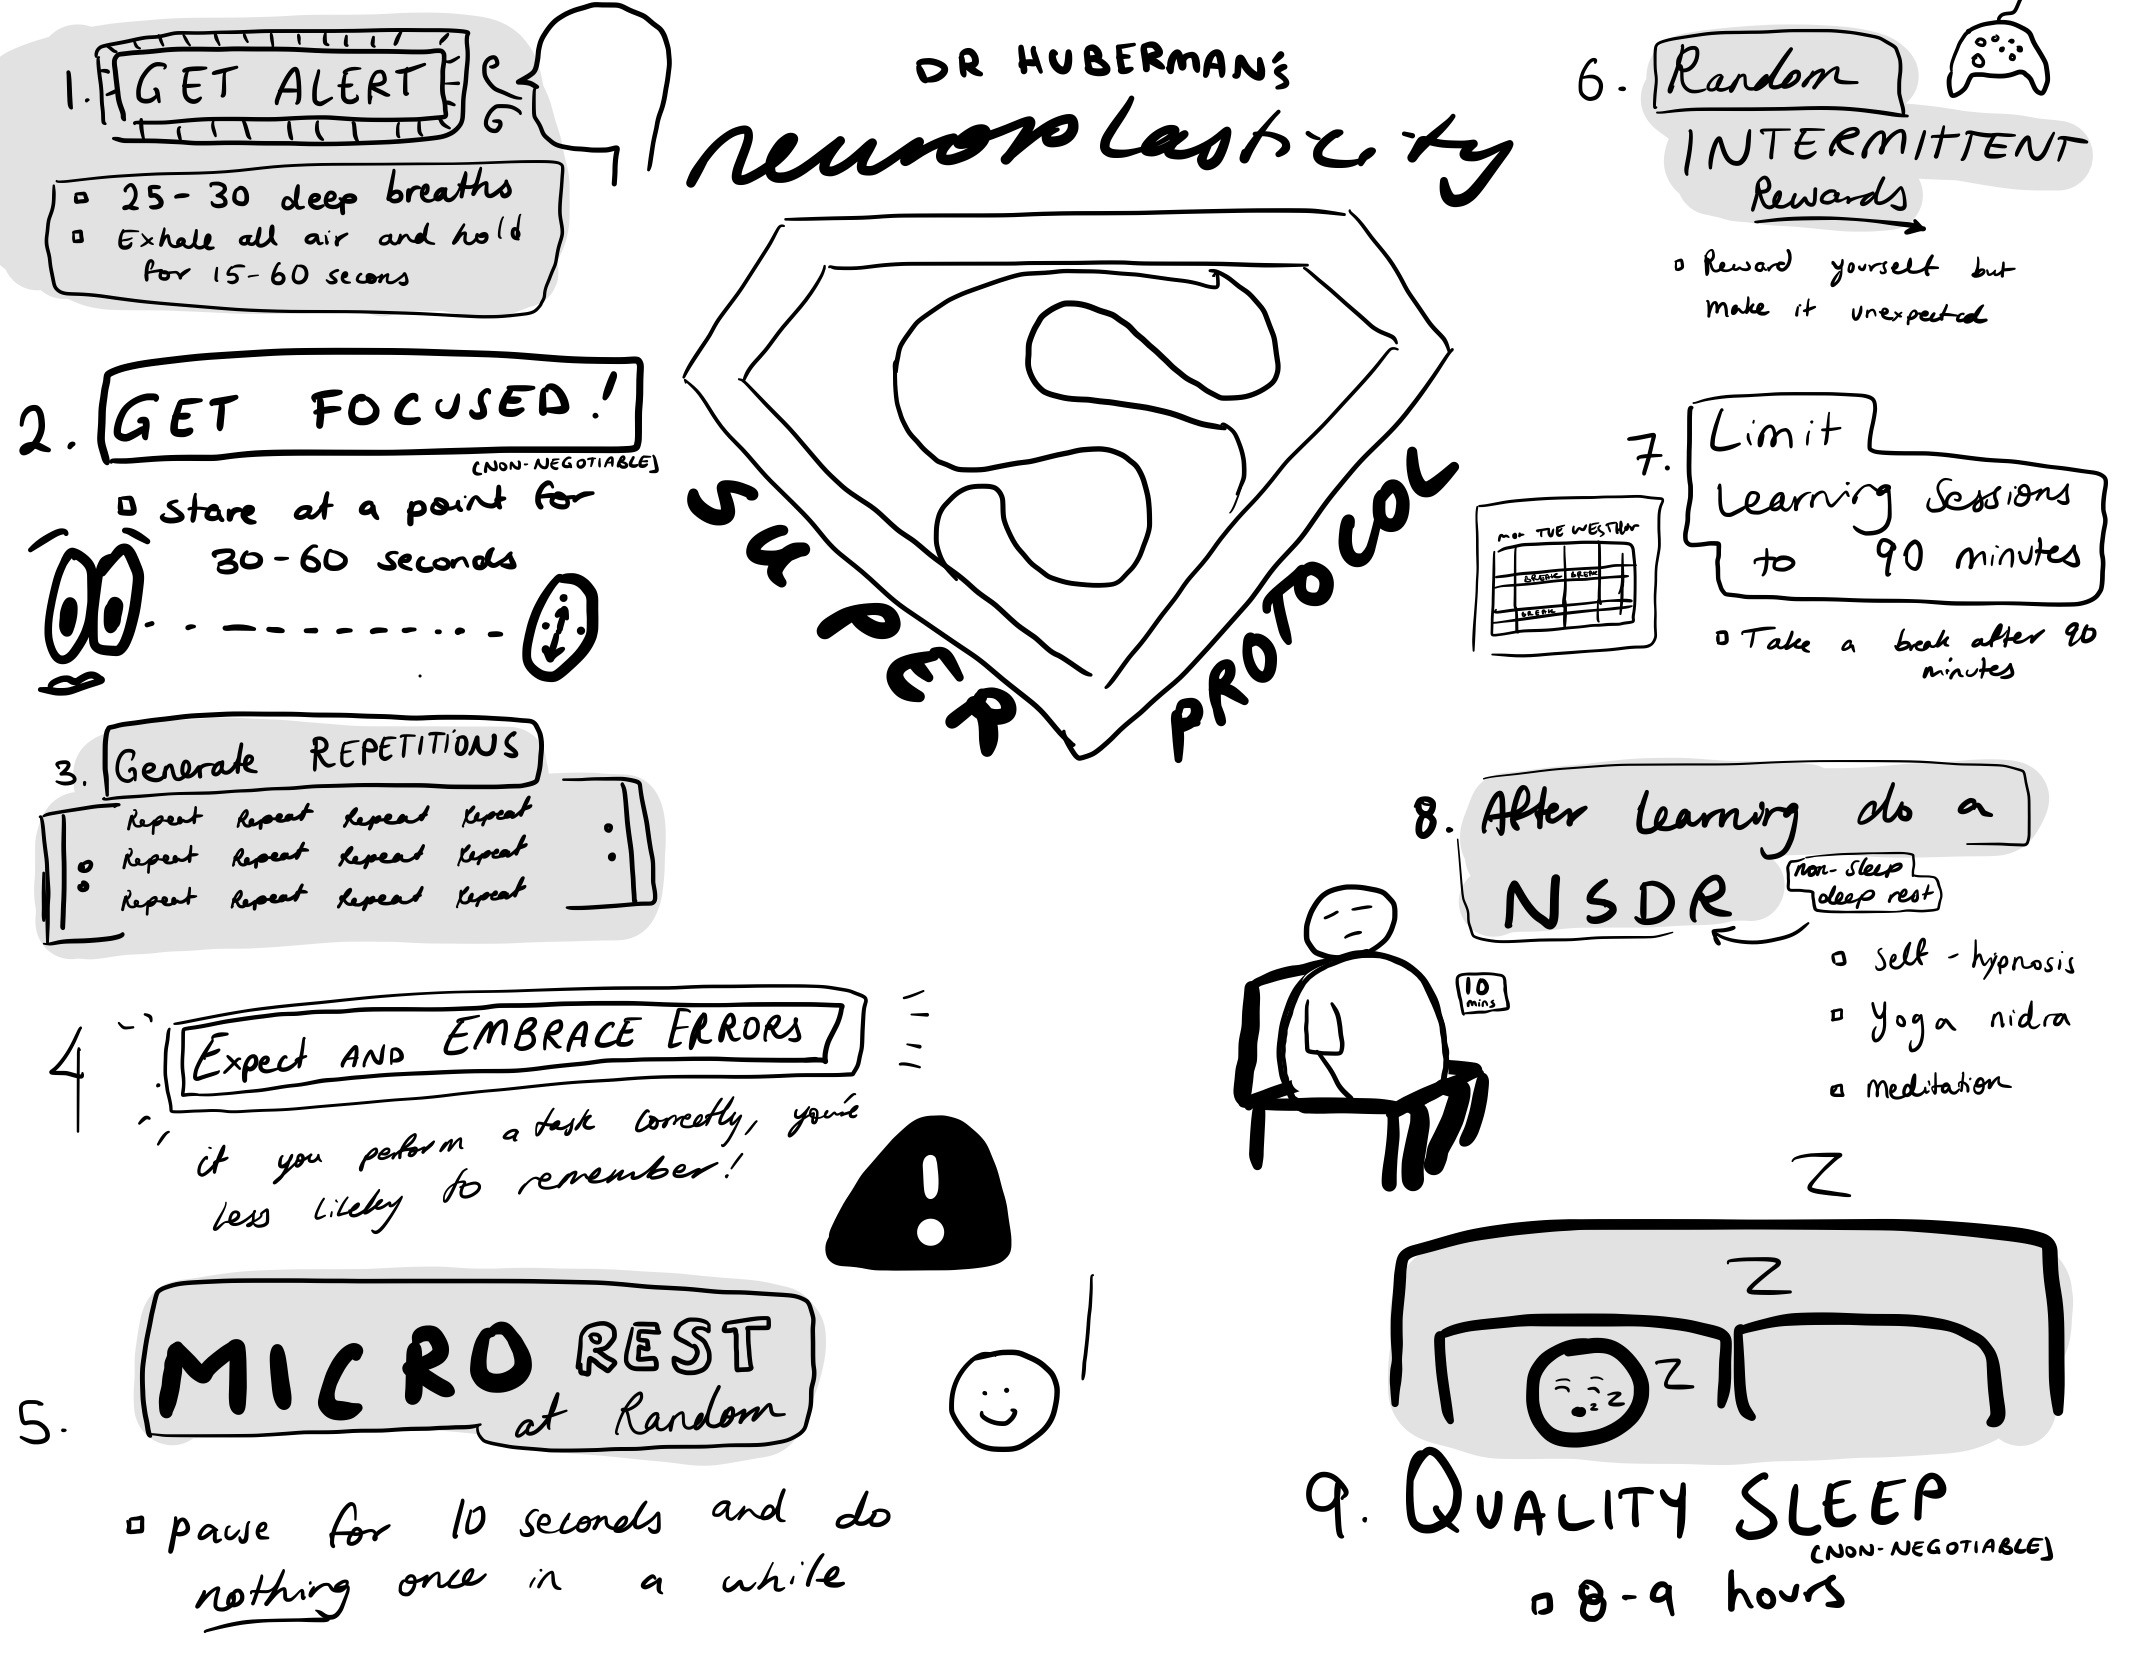 DR HUBERMAN's
neuroplasticity
S
SUPER PROTOCOL
1. GET ALERT
25-30 deep breaths
Exhale all air and hold
for 15-60 secons
2. GET FOCUSED!
(NON-NEGOTIABLE)
stare at a point for
30-60 seconds
3. Generate REPETITIONS
Repeat Repeat Repeat Repeat
Repeat Repeat Repeat Repeat
Repeat Repeat Repeat Repeat
4 Expect AND EMBRACE ERRORS
if you perform a task correctly, you're
less likely to remember!
!
5. MICRO REST
at Random
pause for 10 seconds and do
nothing once in a while
6. Random
INTERMITTENT
Rewards
Reward yourself but
make it unexpected
7. Limit
Learning Sessions
to 90 minutes
MON TUE WES THUR
BREAK BREAK
BREAK
Take a break after 90
minutes
8. After learning do a
NSDR
non-sleep
deep rest
10
mins
self-hypnosis
Yoga nidra
meditation
Z
Z
Z
z
z
z
9. QUALITY SLEEP
(NON-NEGOTIABLE)
8-9 hours